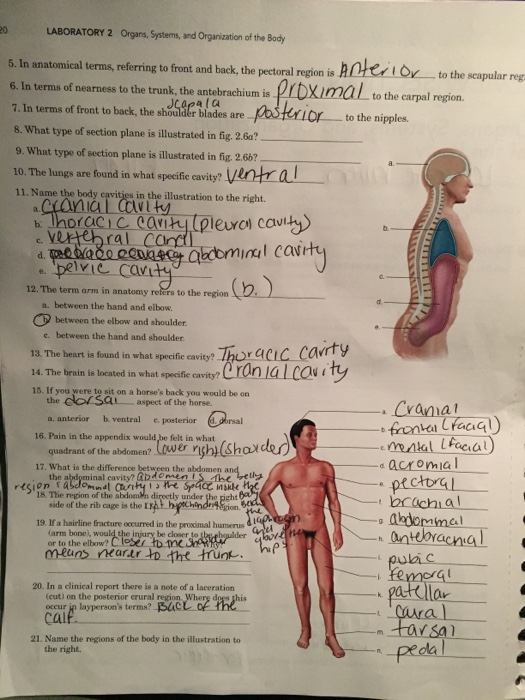 20
LABORATORY 2 Organs, Systems, and Organization of the Body
5. In anatomical terms, referring to front and back, the pectoral region is Anterior to the scapular reg
6. In terms of nearness to the trunk, the antebrachium is proximal to the carpal region.
scapala
7. In terms of front to back, the shoulder blades are posterior to the nipples.
8. What type of section plane is illustrated in fig. 2.6a?
9. What type of section plane is illustrated in fig. 2.6b?
10. The lungs are found in what specific cavity? Ventral
11. Name the body cavities in the illustration to the right.
a. Cranial Cavity
b. Thoracic cavity (pleural cavity)
c. vertebral canal
d. abdominal cavity
e. pelvic cavity
a.
b.
c.
d.
e.
12. The term arm in anatomy refers to the region (b.)
a. between the hand and elbow.
b between the elbow and shoulder.
c. between the hand and shoulder.
13. The heart is found in what specific cavity? Thoracic cavity
14. The brain is located in what specific cavity? Cranial cavity
15. If you were to sit on a horse's back you would be on
the dorsal aspect of the horse.
a. anterior b. ventral c. posterior d. dorsal
16. Pain in the appendix would be felt in what
quadrant of the abdomen? Lower right
17. What is the difference between the abdomen and
the abdominal cavity? abdomen is the belly
region & abdominal cavity is the space inside the Body
18. The region of the abdomen directly under the right
side of the rib cage is the right hypochondriac region.
diaphragm and above the hips.
19. If a hairline fracture occurred in the proximal humerus
(arm bone), would the injury be closer to the shoulder
or to the elbow? Closer to the
means nearer to the trunk.
20. In a clinical report there is a note of a laceration
(cut) on the posterior crural region. Where does this
occur in layperson's terms? Back of the
calf.
21. Name the regions of the body in the illustration to
the right.
a. Cranial
b. frontal (facial)
c. mental (facial)
d. acromial
e. pectoral
f. brachial
g. abdominal
h. antebracnial
i. pubic
j. femoral
k. patellar
l. caral
m. tarsal
n. pedal